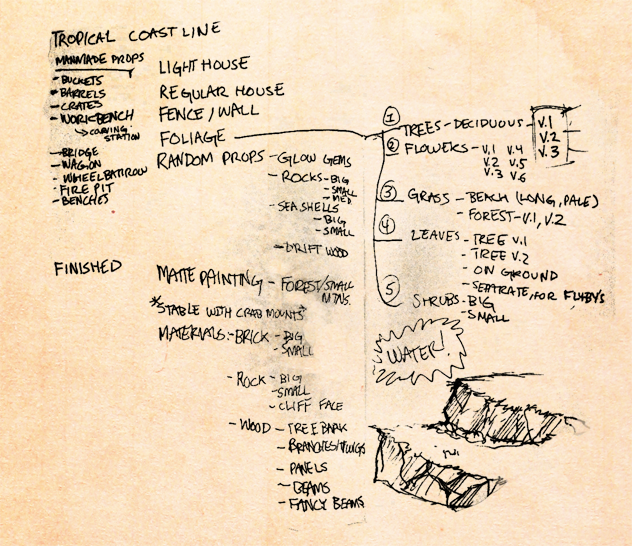 TROPICAL COAST LINE
MANMADE PROPS
- BUCKETS
- BARRELS
- CRATES
- WORKBENCH
↳ CARVING STATION
- BRIDGE
- WAGON
- WHEELBATIROW
- FIRE PIT
- BENCHES
LIGHT HOUSE
REGULAR HOUSE
FENCE / WALL
FOLIAGE
RANDOM PROPS - GLOW GEMS
- ROCKS - BIG
- SMALL
- MED
- SEA SHELLS
- BIG
- SMALL
- DRIFT WOOD
1 TREES - DECIDUOUS - V.1
V.2
V.3
2 FLOWERS - V.1 V.4
V.2 V.5
V.3 V.6
3 GRASS - BEACH (LONG, PALE)
- FOREST - V.1, V.2
4 LEAVES - TREE V.1
- TREE V.2
- ON GROUND
- SEPARATE, FOR FLYBYS
5 SHRUBS - BIG
- SMALL
FINISHED
MATTE PAINTING - FOREST/SMALL
MTNS.
*STABLE WITH CRAB MOUNTS*
MATERIALS: - BRICK - BIG
- SMALL
- ROCK - BIG
- SMALL
- CLIFF FACE
- WOOD - TREE BARK
- BRANCHES/TWIGS
- PANELS
- BEAMS
- FANCY BEAMS
WATER!